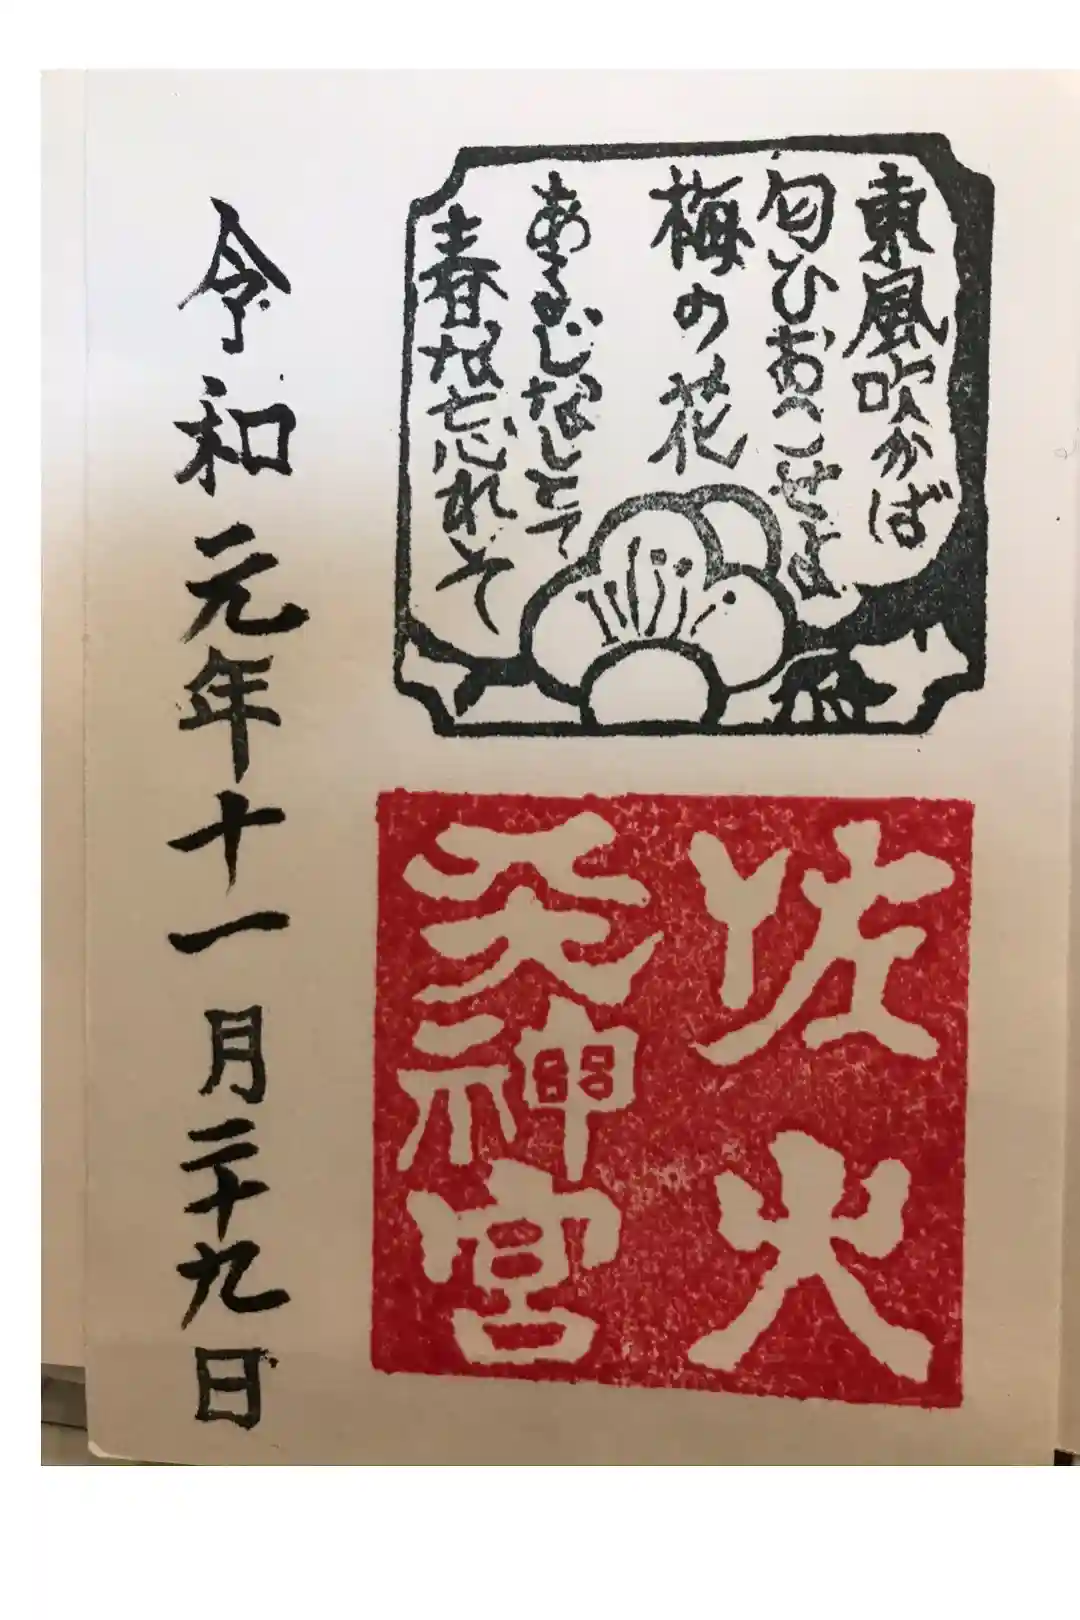 東風吹かば
匂ひおこせよ
梅の花
あるじなしとて
春な忘れそ
佐火
天神宮
令和元年十一月二十九日